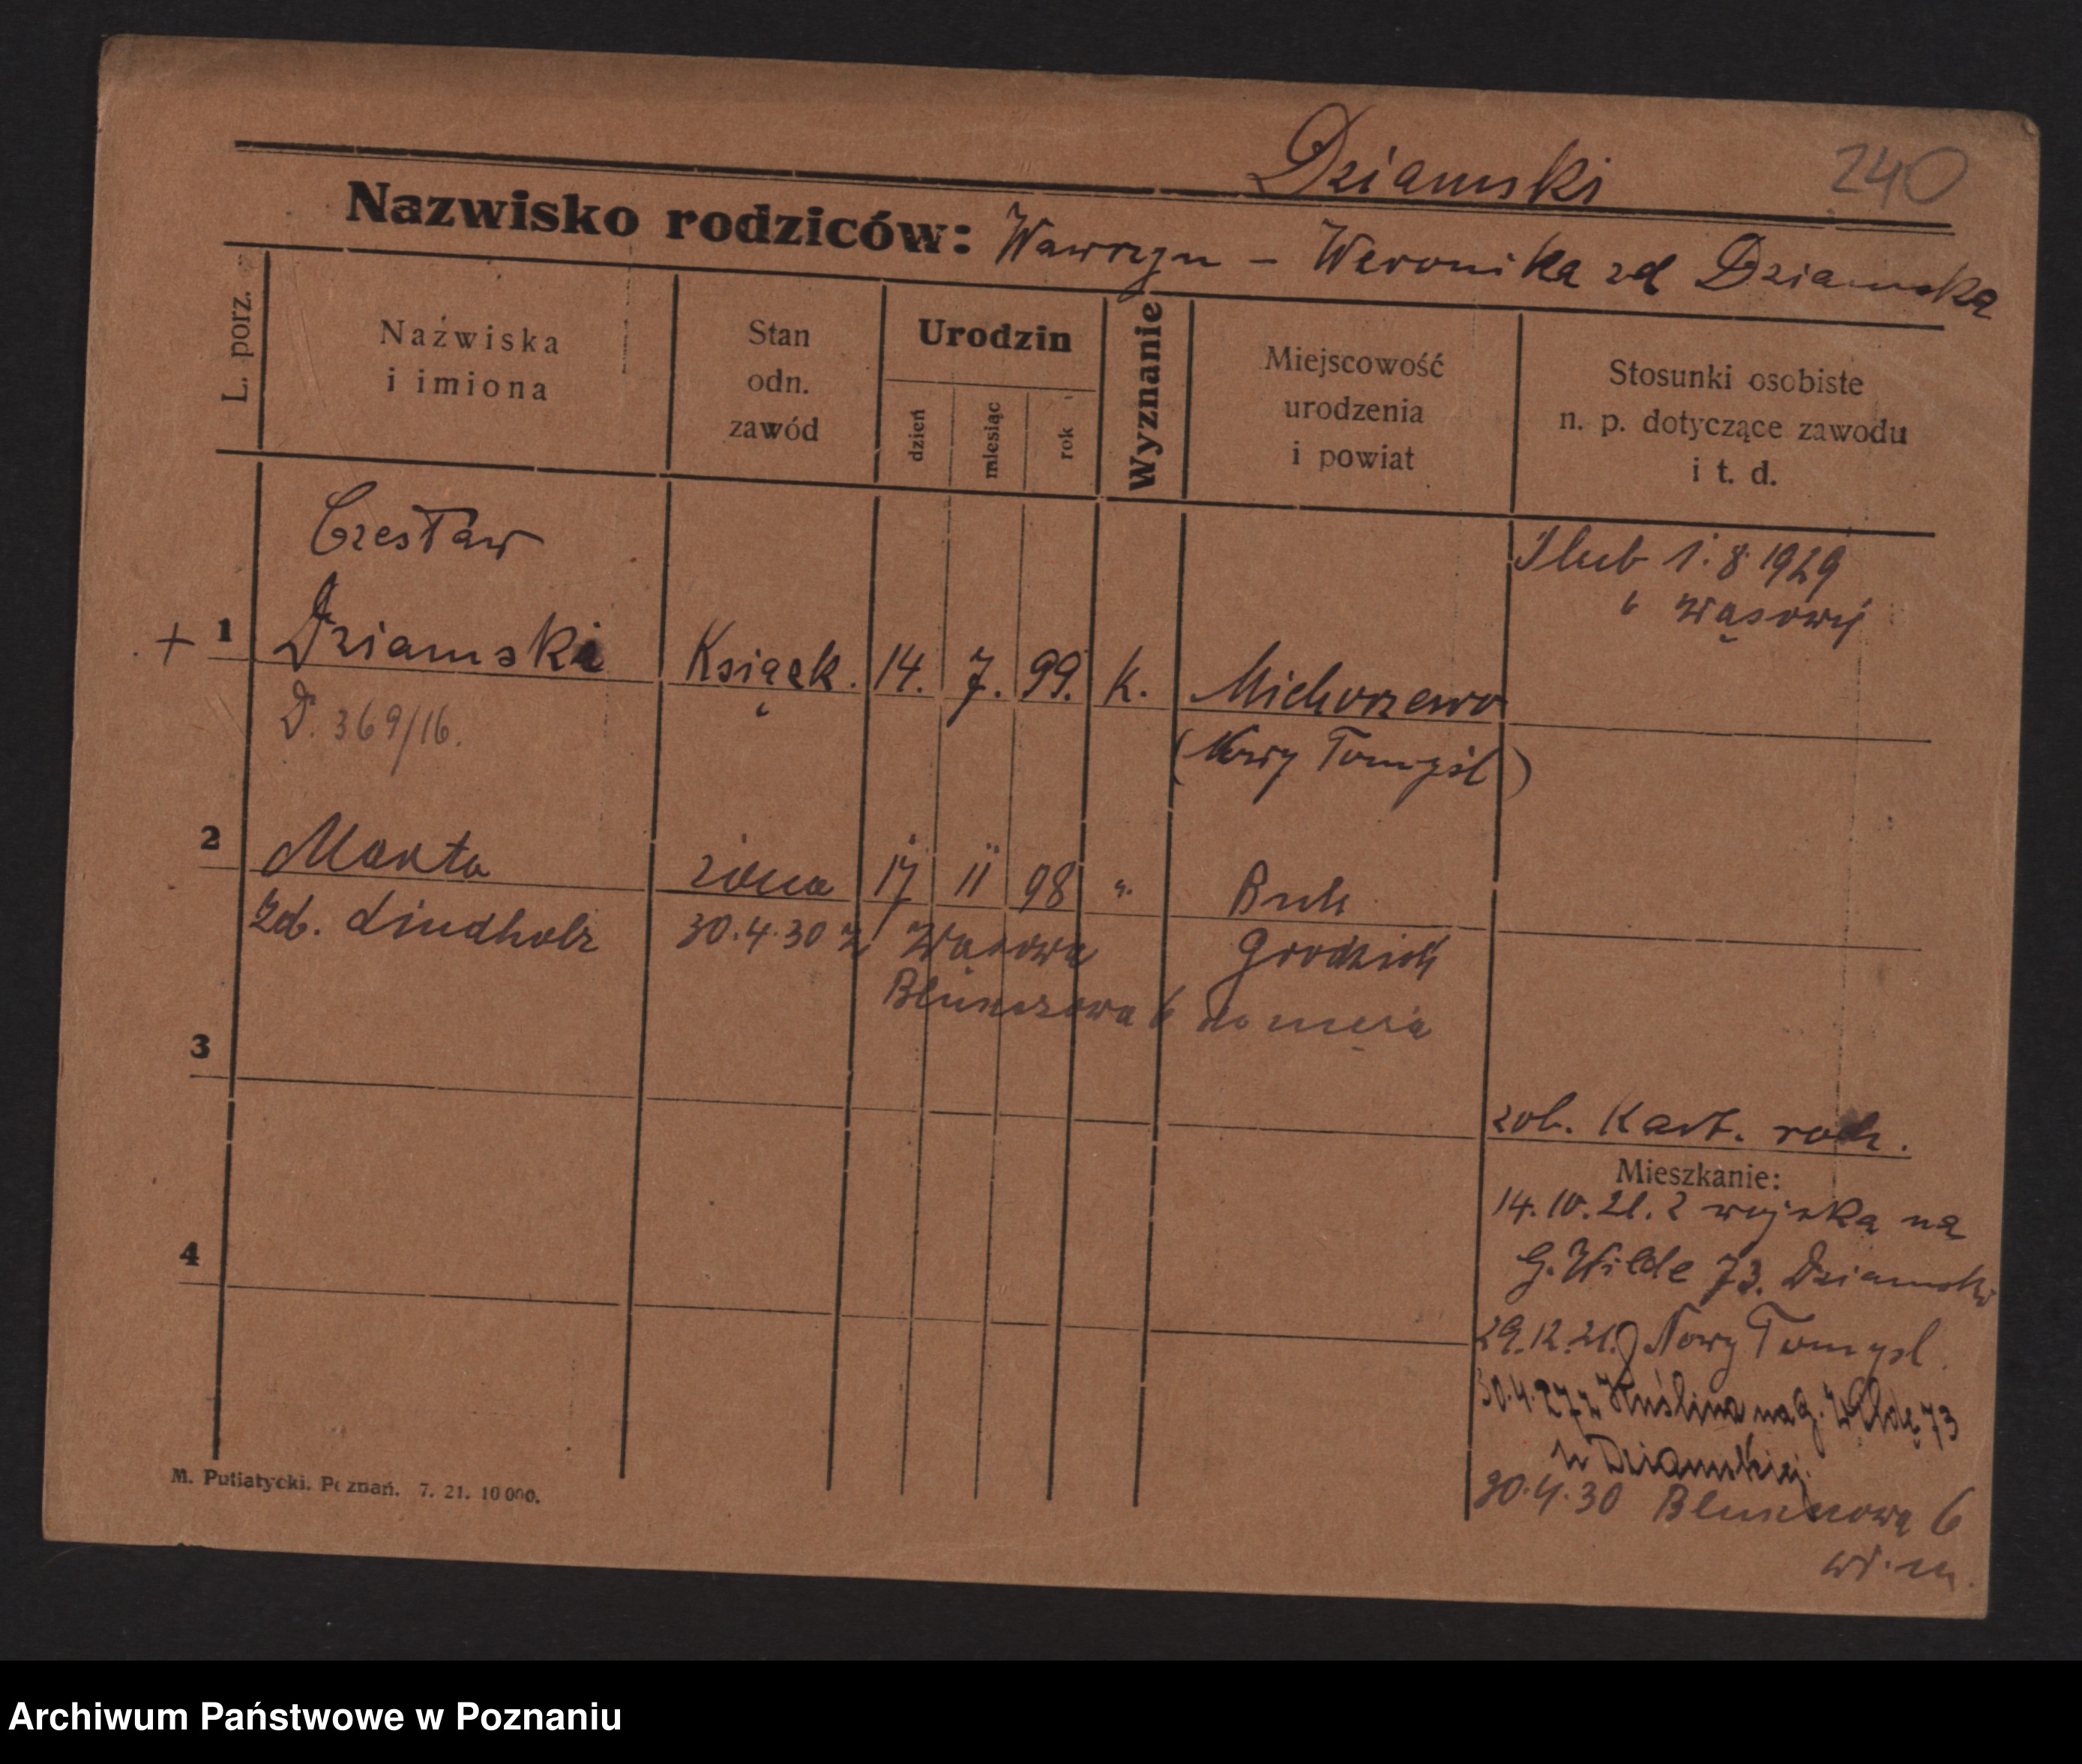 Dziamski 240
Nazwisko rodziców: Wawrzyn – Weronika zd Dziamska
L. porz.
Nazwiska
i imiona
Stan
odn.
zawód
Urodzin
dzień
miesiąc
rok
Wyznanie
Miejscowość
urodzenia
i powiat
Stosunki osobiste
n. p. dotyczące zawodu
i t. d.
Czesław
Ślub 1.8.1929
Wąsowy
+ 1 Dziamski Książk. 14. 7. 99. k. Michorzewo
D. 369/16. (Nowy Tomyśl)
2 Marta żona 17 11 98 ". Buk
zd. Lindholz 30.4.30 z Wąsowa Grodzisk
6 do męża
3
zob. Kart. rodz.
Mieszkanie:
14.10.21. z wojska na
G. Wilde 73. Dziamski
4
29.12.21. Nowy Tomysl.
30.4.27 z Kuślina na G. Wildę 73
u Dziamskiej.
30.4.30 6
wł. m.
M. Putiatycki, Poznań. 7. 21. 10000.
Archiwum Państwowe w Poznaniu